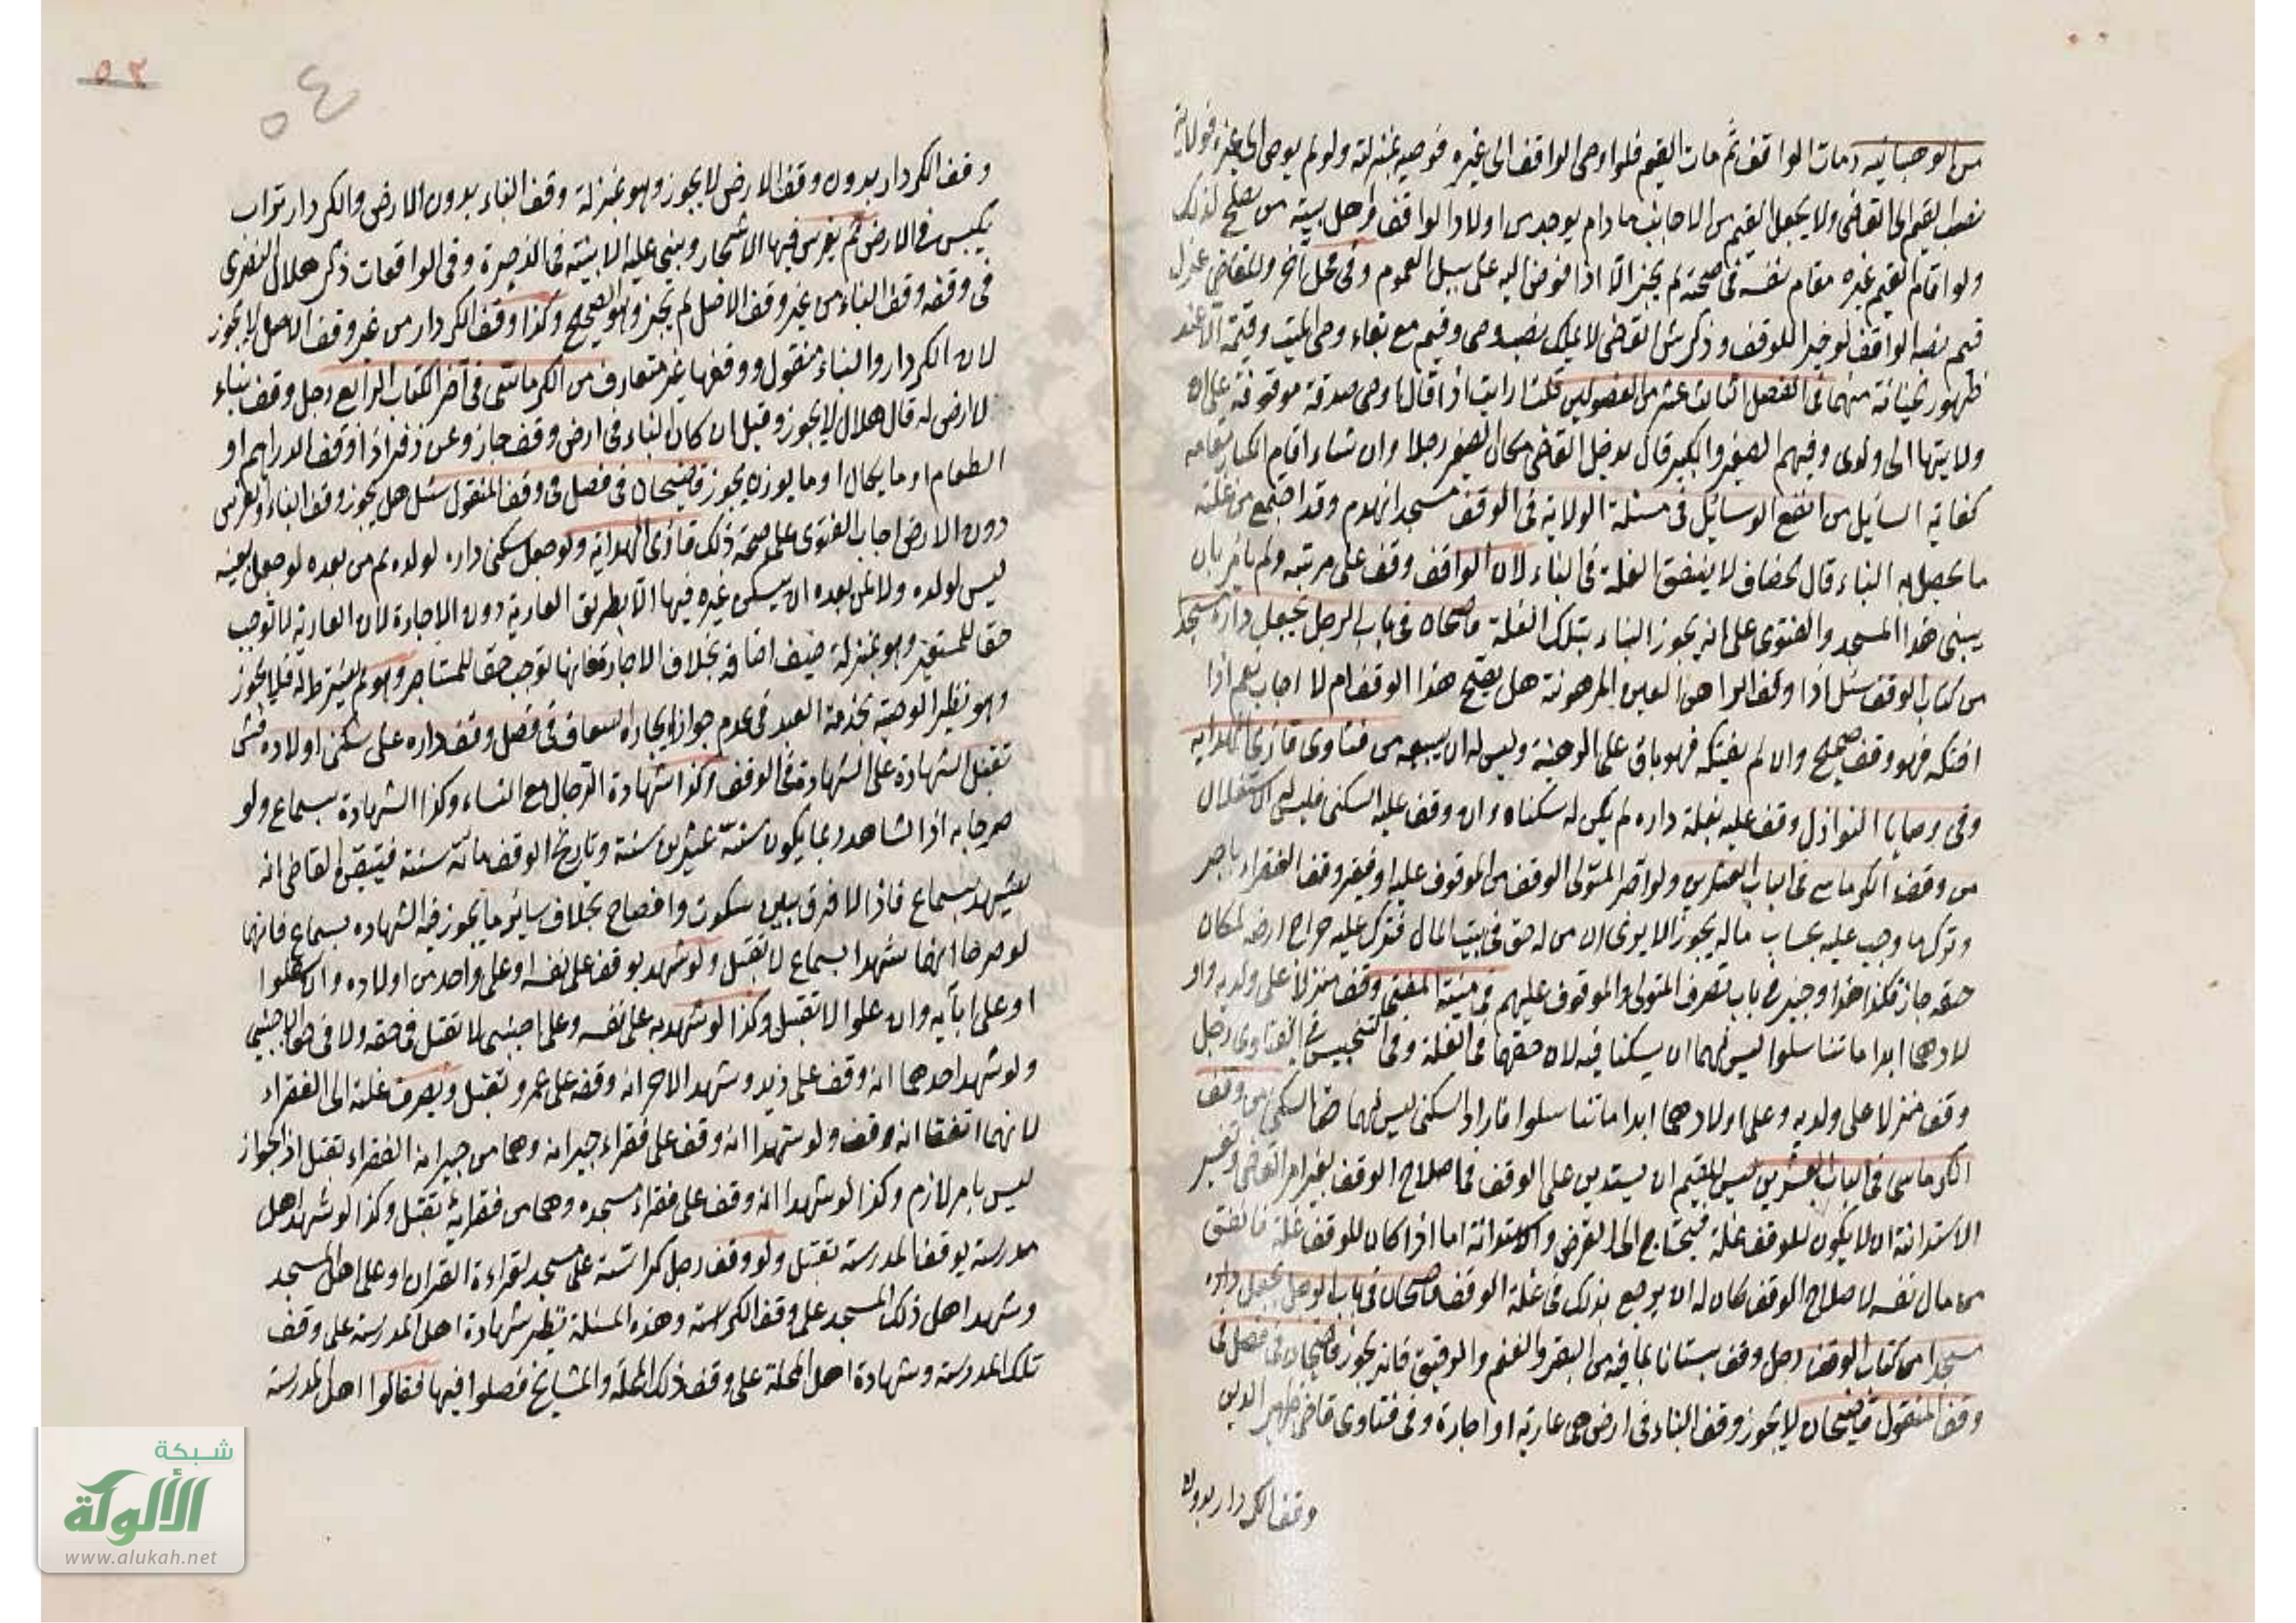 من الوهبانيه ومات الواقف ثم مات القيم فلو اوصى الواقف الى غيره فوصيه بمنزلته ولو لم يوص الى غيره فولاية
نصب القيم الى القاضى ولا يجعل القيم من الاجانب ما دام يوجد من اولاد الواقف واهل بيته من يصلح لذلك
ولو اقام القيم غيره مقام نفسه فى صحته لم يجز الا اذا فوض اليه على سبيل العموم وفى محل آخر وللقاضى عزل
قيم نصبه الواقف لو خيرا للوقف وذكر القاضى لا يملك نصب وصى وقيم مع بقاء وصى الميت وقيمه الا عند
ظهور خيانة منهما فى الفصل الثالث عشر من الفصولين قلت ارايت اذا قال ارضى صدقة موقوفة على ان
ولايتها الى ولدى وفيهم الصغير والكبير قال يدخل القاضى مكان الصغير رجلا وان شاء اقام الكبار مقامه
كفاية السايل من انفع الوسائل فى مسئلة الولاية فى الوقف مسجد انهدم وقد اجتمع من غلته
ما يحصل به البناء قال الخصاف لا ينفق الغلة فى البناء لان الواقف وقف على مرمته ولم يامر بان
يبنى هذا المسجد والفتوى على انه يجوز البناء بتلك الغلة قاضيخان فى باب الرجل يجعل داره مسجدا
من كتاب الوقف سئل اذا وقف الراهن العين المرهونة هل يصح هذا الوقف ام لا اجاب نعم اذا
افتكه فهو وقف صحيح وان لم يفتكه فهو باق على الرهنية وليس له ان يبيعه من فتاوى قارئ الهداية
وفى وصايا النوازل وقف عليه بغلة داره لم يكن له سكناه وان وقف عليه السكنى فليس له الاستغلال
من وقف الكرماسى فى الباب العشرين ولو اقر المتولى الوقف من الموقوف عليه او فقير وقف الفقراء باجر
وترك ما وجب عليه بحساب ماله يجوز الا يرى ان من له حق فى بيت المال فترك عليه خراج ارضه لمكان
حقه جاز فكذا هذا وجيز فى باب تصرف المتولى والموقوف عليهم فى منية المفتى وقف منزلا على ولديه واو
لادهما ابدا ما تناسلوا ليس لهما ان يسكنا فيه لان حقهما فى الغلة وفى التجنيس فى الفتاوى رجل
وقف منزلا على ولديه وعلى اولادهما ابدا ما تناسلوا فاراد السكنى ليس لهما حق السكنى من وقف
الكرماسى فى الباب العشرين ليس للقيم ان يستدين على الوقف فى اصلاح الوقف بغير امر القاضى وتفسير
الاستدانة ان لا يكون للوقف غلة فيحتاج الى القرض والاستدانة اما اذا كان للوقف غلة فانفق
من مال نفسه لاصلاح الوقف كان له ان يرجع بذلك فى غلة الوقف قاضيخان فى باب الرجل يجعل داره
مسجدا من كتاب الوقف رجل وقف بستانا بما فيه من البقر والغنم والرقيق فانه يجوز قاضيخان فى فصل فى
وقف المنقول قاضيخان لا يجوز وقف البناء فى ارض هى عارية او اجارة وفى فتاوى قاضى ظهير الدين
وقف الكردار بدون
٥٣
٥٤
وقف الكردار بدون وقف الارض لا يجوز وهو بمنزلة وقف البناء بدون الارض والكردار تراب
يكبس فى الارض ثم يغرس فيها الاشجار ويبنى عليه الابنية فى الذخيرة وفى الواقعات ذكر هلال البصرى
فى وقفه وقف البناء من غير وقف الاصل لم يجز وهو الصحيح وكذا وقف الكردار من غير وقف الاصل لا يجوز
لان الكردار والبناء منقول ووقفها غير متعارف من الكرماسى فى آخر الكتاب الرابع رجل وقف بناء
لا ارض له قال هلال لا يجوز وقيل ان كان البناء فى ارض وقف جاز وعن زفر اذا وقف الدراهم او
الطعام او ما يكال او ما يوزن يجوز قاضيخان فى فصل فى وقف المنقول سئل هل يجوز وقف البناء والغرس
دون الارض اجاب الفتوى على صحة ذلك قارئ الهداية ولو جعل سكنى داره لولده ثم من بعده لو جعل بعينه
ليس لولده ولا لمن بعده ان يسكن غيره فيها الا بطريق العارية دون الاجارة لان العارية لا توجب
حقا للمستعير وهو بمنزلة ضيف اضافه بخلاف الاجارة فانها توجب حقا للمستاجر وهو لم يشترط له فلا يجوز
وهو نظير الوصية بخدمة العبد فى عدم جواز ايجاره اسعاف فى فصل وقف داره على سكنى اولاده
تقبل الشهادة على الشهادة فى الوقف وكذا شهادة الرجال مع النساء وكذا الشهادة بسماع ولو
صرحا به اذ الشاهد ربما يكون سنه عشرين سنة وتاريخ الوقف مائة سنة فيتيقن القاضى انه
يشهد بسماع فاذا لا فرق بين سكوت وافصاح بخلاف سائر ما يجوز فيه الشهاده بسماع فانهما
لو صرحا انهما شهدا بسماع لا تقبل ولو شهد بوقف على نفسه او على واحد من اولاده وان سفلوا
او على ابآيه وان علوا لا تقبل وكذا لو شهد به على نفسه وعلى اجنبى لا تقبل فى حقه ولا فى حق الاجنبى
ولو شهد احدهما انه وقف على زيد وشهد الاخر انه وقفه على عمرو تقبل ويصرف غلته الى الفقراء
لانهما اتفقا انه وقف ولو شهدا انه وقف على فقراء جيرانه وهما من جيرانه الفقراء تقبل اذ الجواز
ليس بامر لازم وكذا لو شهدا انه وقف على فقراء مسجده وهما من فقرائه تقبل وكذا لو شهد اهل
مدرسة بوقف المدرسة تقبل ولو وقف رجل كراسة على مسجد لقراءة القران او على اهل المسجد
وشهد اهل ذلك المسجد على وقف الكراسة وهذه المسئلة نظير شهادة اهل المدرسة على وقف
تلك المدرسة وشهادة اهل المحلة على وقف ذلك المحلة والمشايخ فصلوا فيها فقالوا اهل المدرسة
شبكة
الألوكة
www.alukah.net